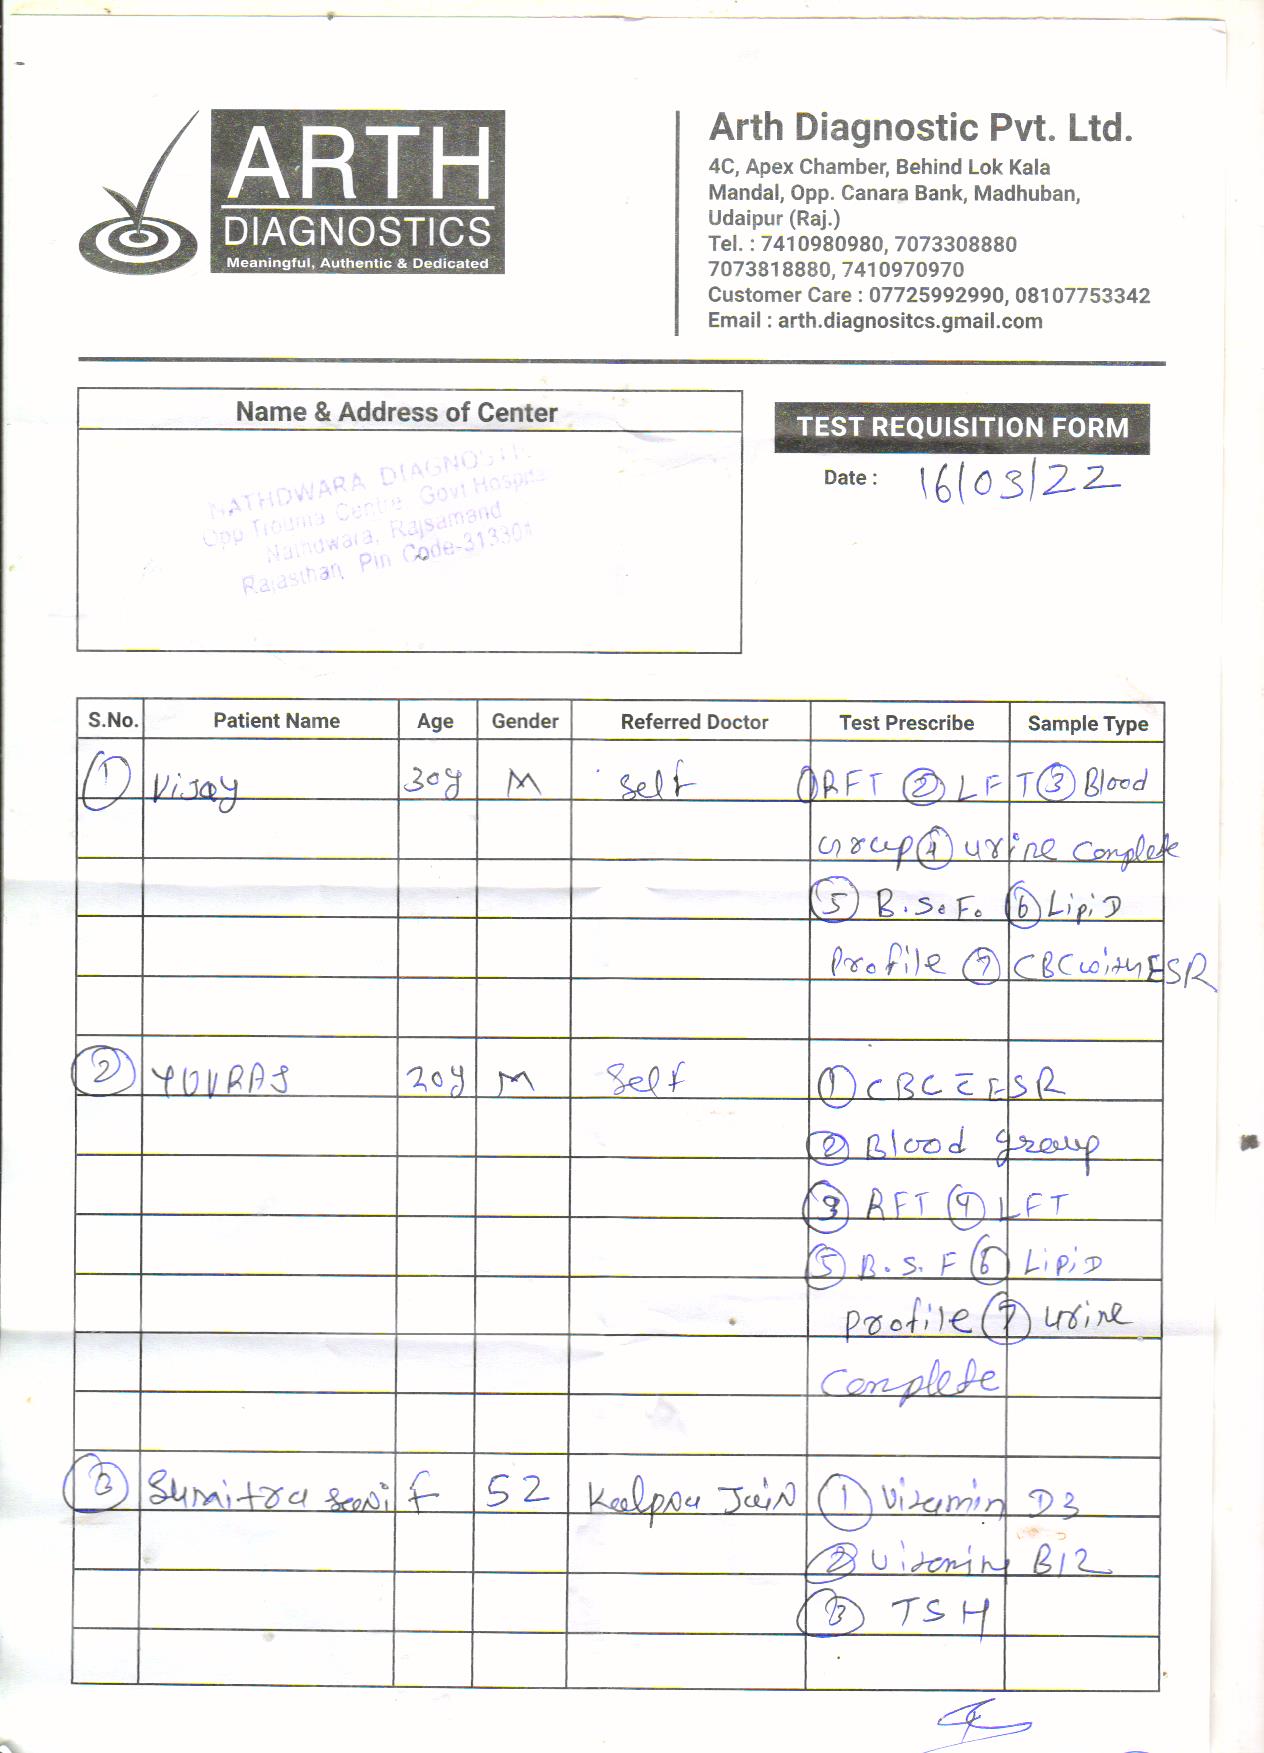 ARTH
DIAGNOSTICS
Meaningful, Authentic & Dedicated
Arth Diagnostic Pvt. Ltd.
4C, Apex Chamber, Behind Lok Kala
Mandal, Opp. Canara Bank, Madhuban,
Udaipur (Raj.)
Tel. : 7410980980, 7073308880
7073818880, 7410970970
Customer Care : 07725992990, 08107753342
Email : arth.diagnositcs.gmail.com
Name & Address of Center
NATHDWARA DIAGNOSTI
Opp Trouma Centre Govt Hospita
Nathdwara, Rajsamand
Rajasthan, Pin Code-313301
TEST REQUISITION FORM
Date : 16/03/22
S.No. Patient Name Age Gender Referred Doctor Test Prescribe Sample Type
1 Vijay 30y M Self 1 RFT 2 LFT 3 Blood
Group 4 urine complete
5 B.S.F. 6 LipiD
Profile 7 CBC with ESR
2 YUVRAJ 20y M Self 1 CBC c̄ ESR
2 Blood group
3 RFT 4 LFT
5 B.S.F 6 LipiD
Profile 7 urine
Complete
3 Sumitra Soni f 52 Kalpna Jain 1 Vitamin D3
2 Vitamin B12
3 TSH